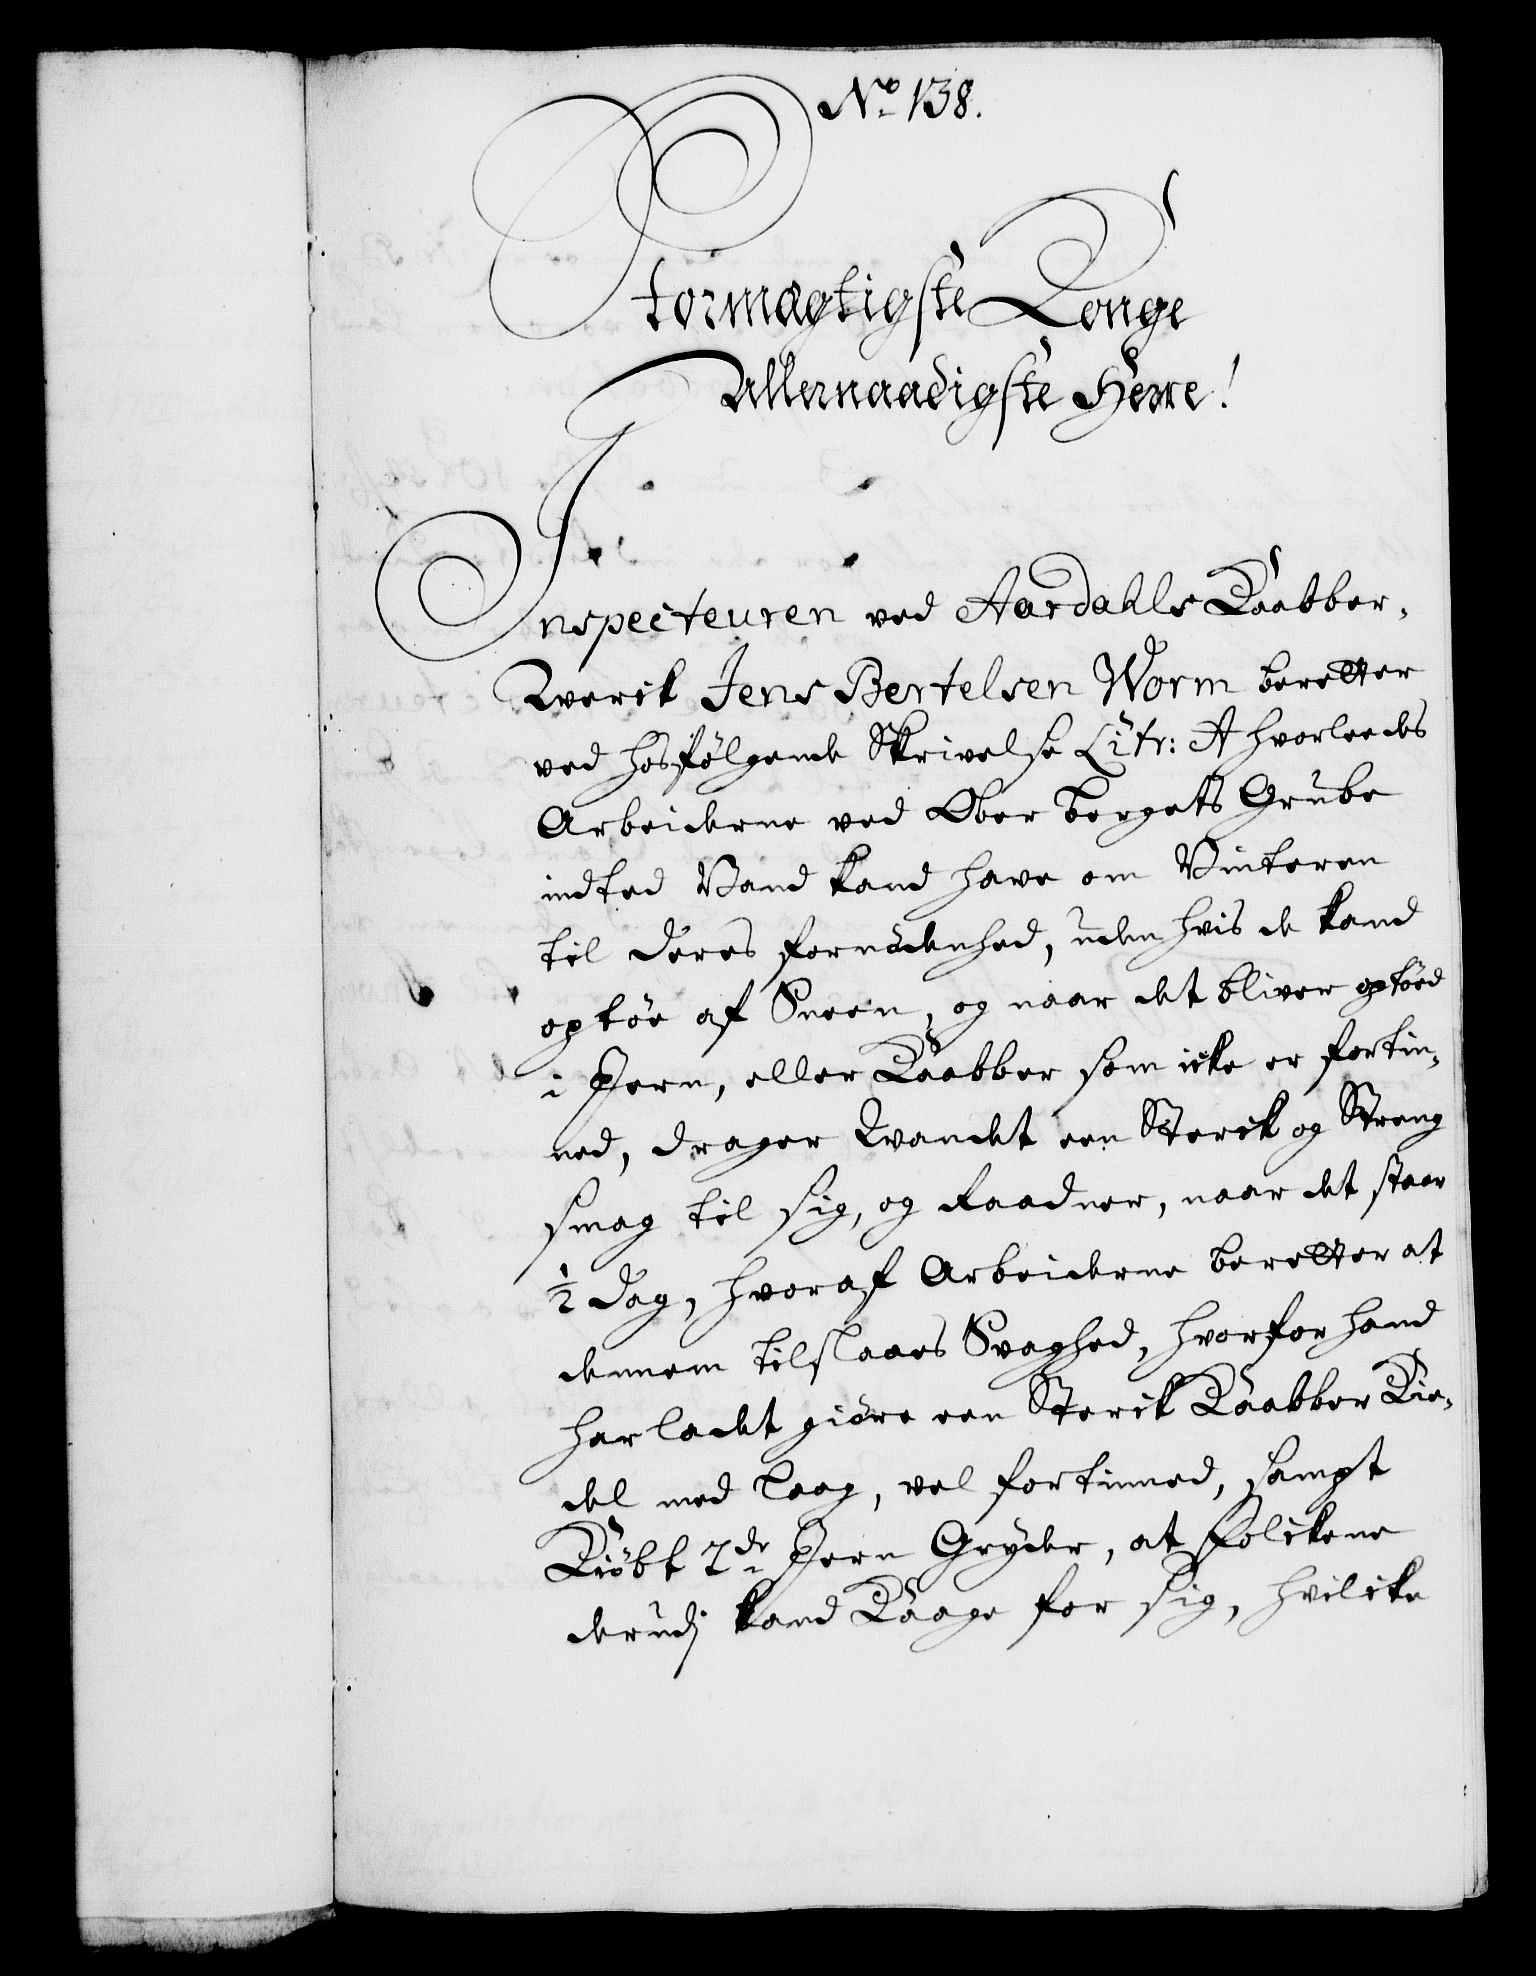 No. 138.
Stormægtigste Konge
Allernaadigste Herre!
Inspecteuren ved Aardahls Kaabber-
Werck Jens Bertelsen Worm beretter
ved hosfølgende Skrivelse Litr: A hvorleedes
Arbeiderne ved Ober Bergets Grube
indted Vand kand have om Vinteren
til deres fornødenhed, uden hvis de kand
optøe af Sneen, og naar det bliver optøed
i Jern, eller Kaabber som icke er fortin-
ned, drager Vandet een Sterck og Streng
smag til sig, og Raadner, naar det staar
1/2 dag, hvoraf Arbeiderne beretter at
dennem tilslaaes Svaghed, hvorfor hand
har ladet giøre een Sterck Kaabber Kie-
del med Laag, vel fortinned, sampt
Kiøbt 2de Jern Gryder, at Folckene
derudj kand Kaage for sig, hvilcke